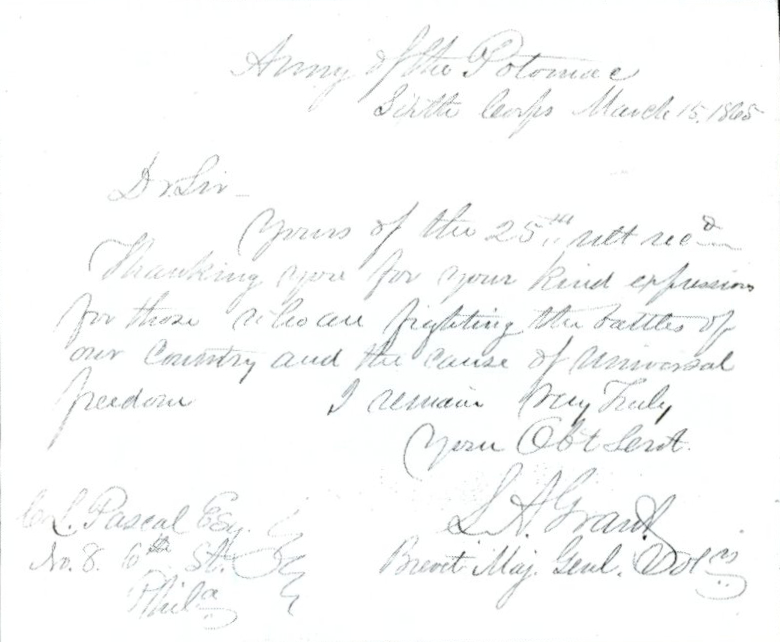 Army of the Potomac
Sixth Corps March 15, 1865
Dr. Sir –
Yours of the 25th ult recd
Thanking you for your kind expression
for those who are fighting the battles of
our Country and the cause of Universal
freedom I remain Very Truly
Your Obt Servt.
L. A. Grant
Brevet Maj. Genl. Vols
C. L. Pascal Esq.
No. 8. 6th St.
Phila